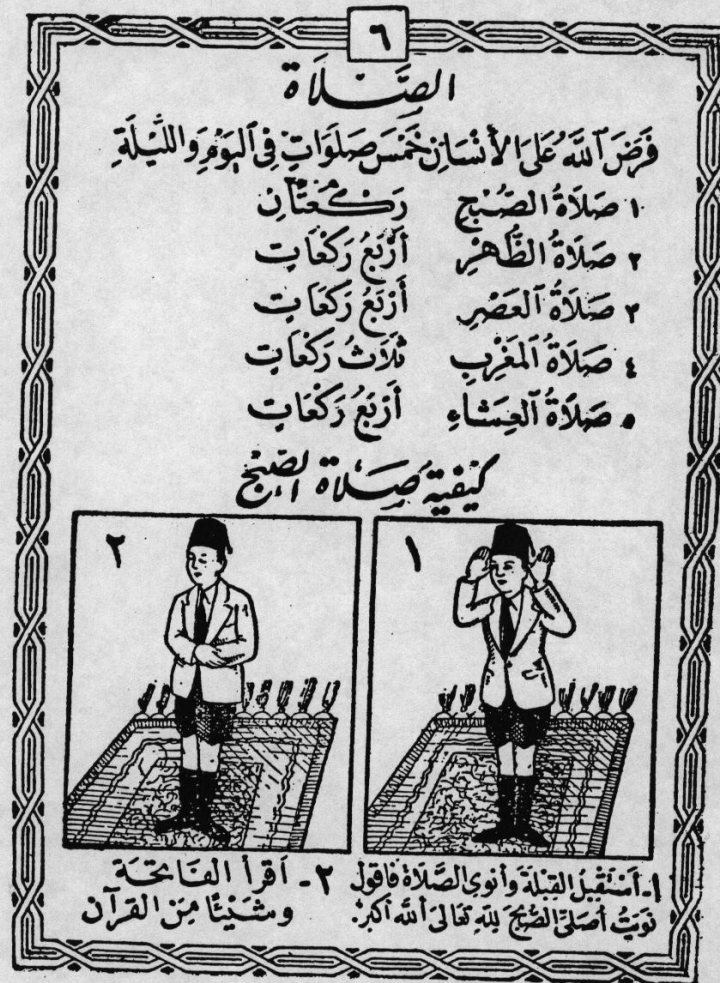 ٦
الصَّلَاة
فَرَضَ ٱللَّهُ عَلَى الأَنْسَانِ خَمْسَ صَلَوَاتٍ فِى ٱلْيَوْمِ وَاللَّيْلَةِ
١ صَلَاةُ الصُّبْحِ رَكْعَتَانِ
٢ صَلَاةُ الظُّهْرِ أَرْبَعُ رَكَعَاتٍ
٣ صَلَاةُ ٱلعَصْرِ أَرْبَعُ رَكَعَاتٍ
٤ صَلَاةُ ٱلمَغْرِبِ ثَلَاثُ رَكَعَاتٍ
٥ صَلَاةُ ٱلعِشَاءِ أَرْبَعُ رَكَعَاتٍ
كيفية صَلَاة الصُّبْح
١
٢
١- أَسْتَقْبِلُ القِبْلَةَ وَأَنْوِى الصَّلَاةَ فَأَقُولُ
نَوَيْتُ أُصَلِّى الصُّبْحَ لِلَّهِ تَعَالَى ٱللَّهُ أَكْبَرُ.
٢- أَقْرَأُ الْفَاتِحَةَ
وَشَيْئًا مِنَ القُرْآنِ